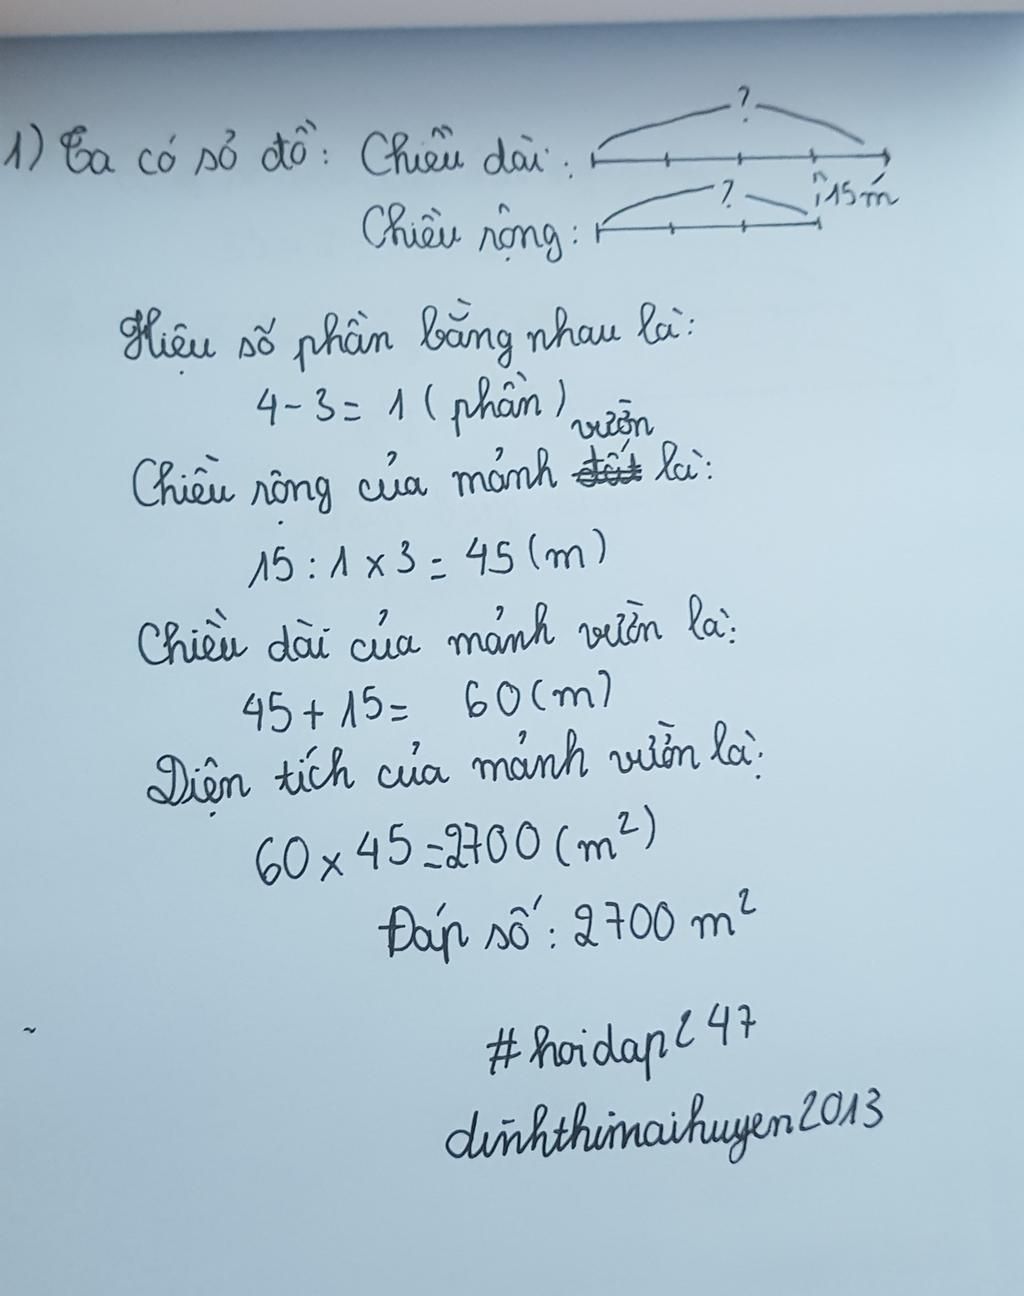 1) Ta có sơ đồ: Chiều dài: ?
15 m
Chiều rộng: ?
Hiệu số phần bằng nhau là:
4 - 3 = 1 (phần)
vườn
Chiều rộng của mảnh đất là:
15 : 1 x 3 = 45 (m)
Chiều dài của mảnh vườn là:
45 + 15 = 60 (m)
Diện tích của mảnh vườn là:
60 x 45 = 2700 (m²)
Đáp số: 2700 m²
#hoidap247
dinhthimaihuyen2013